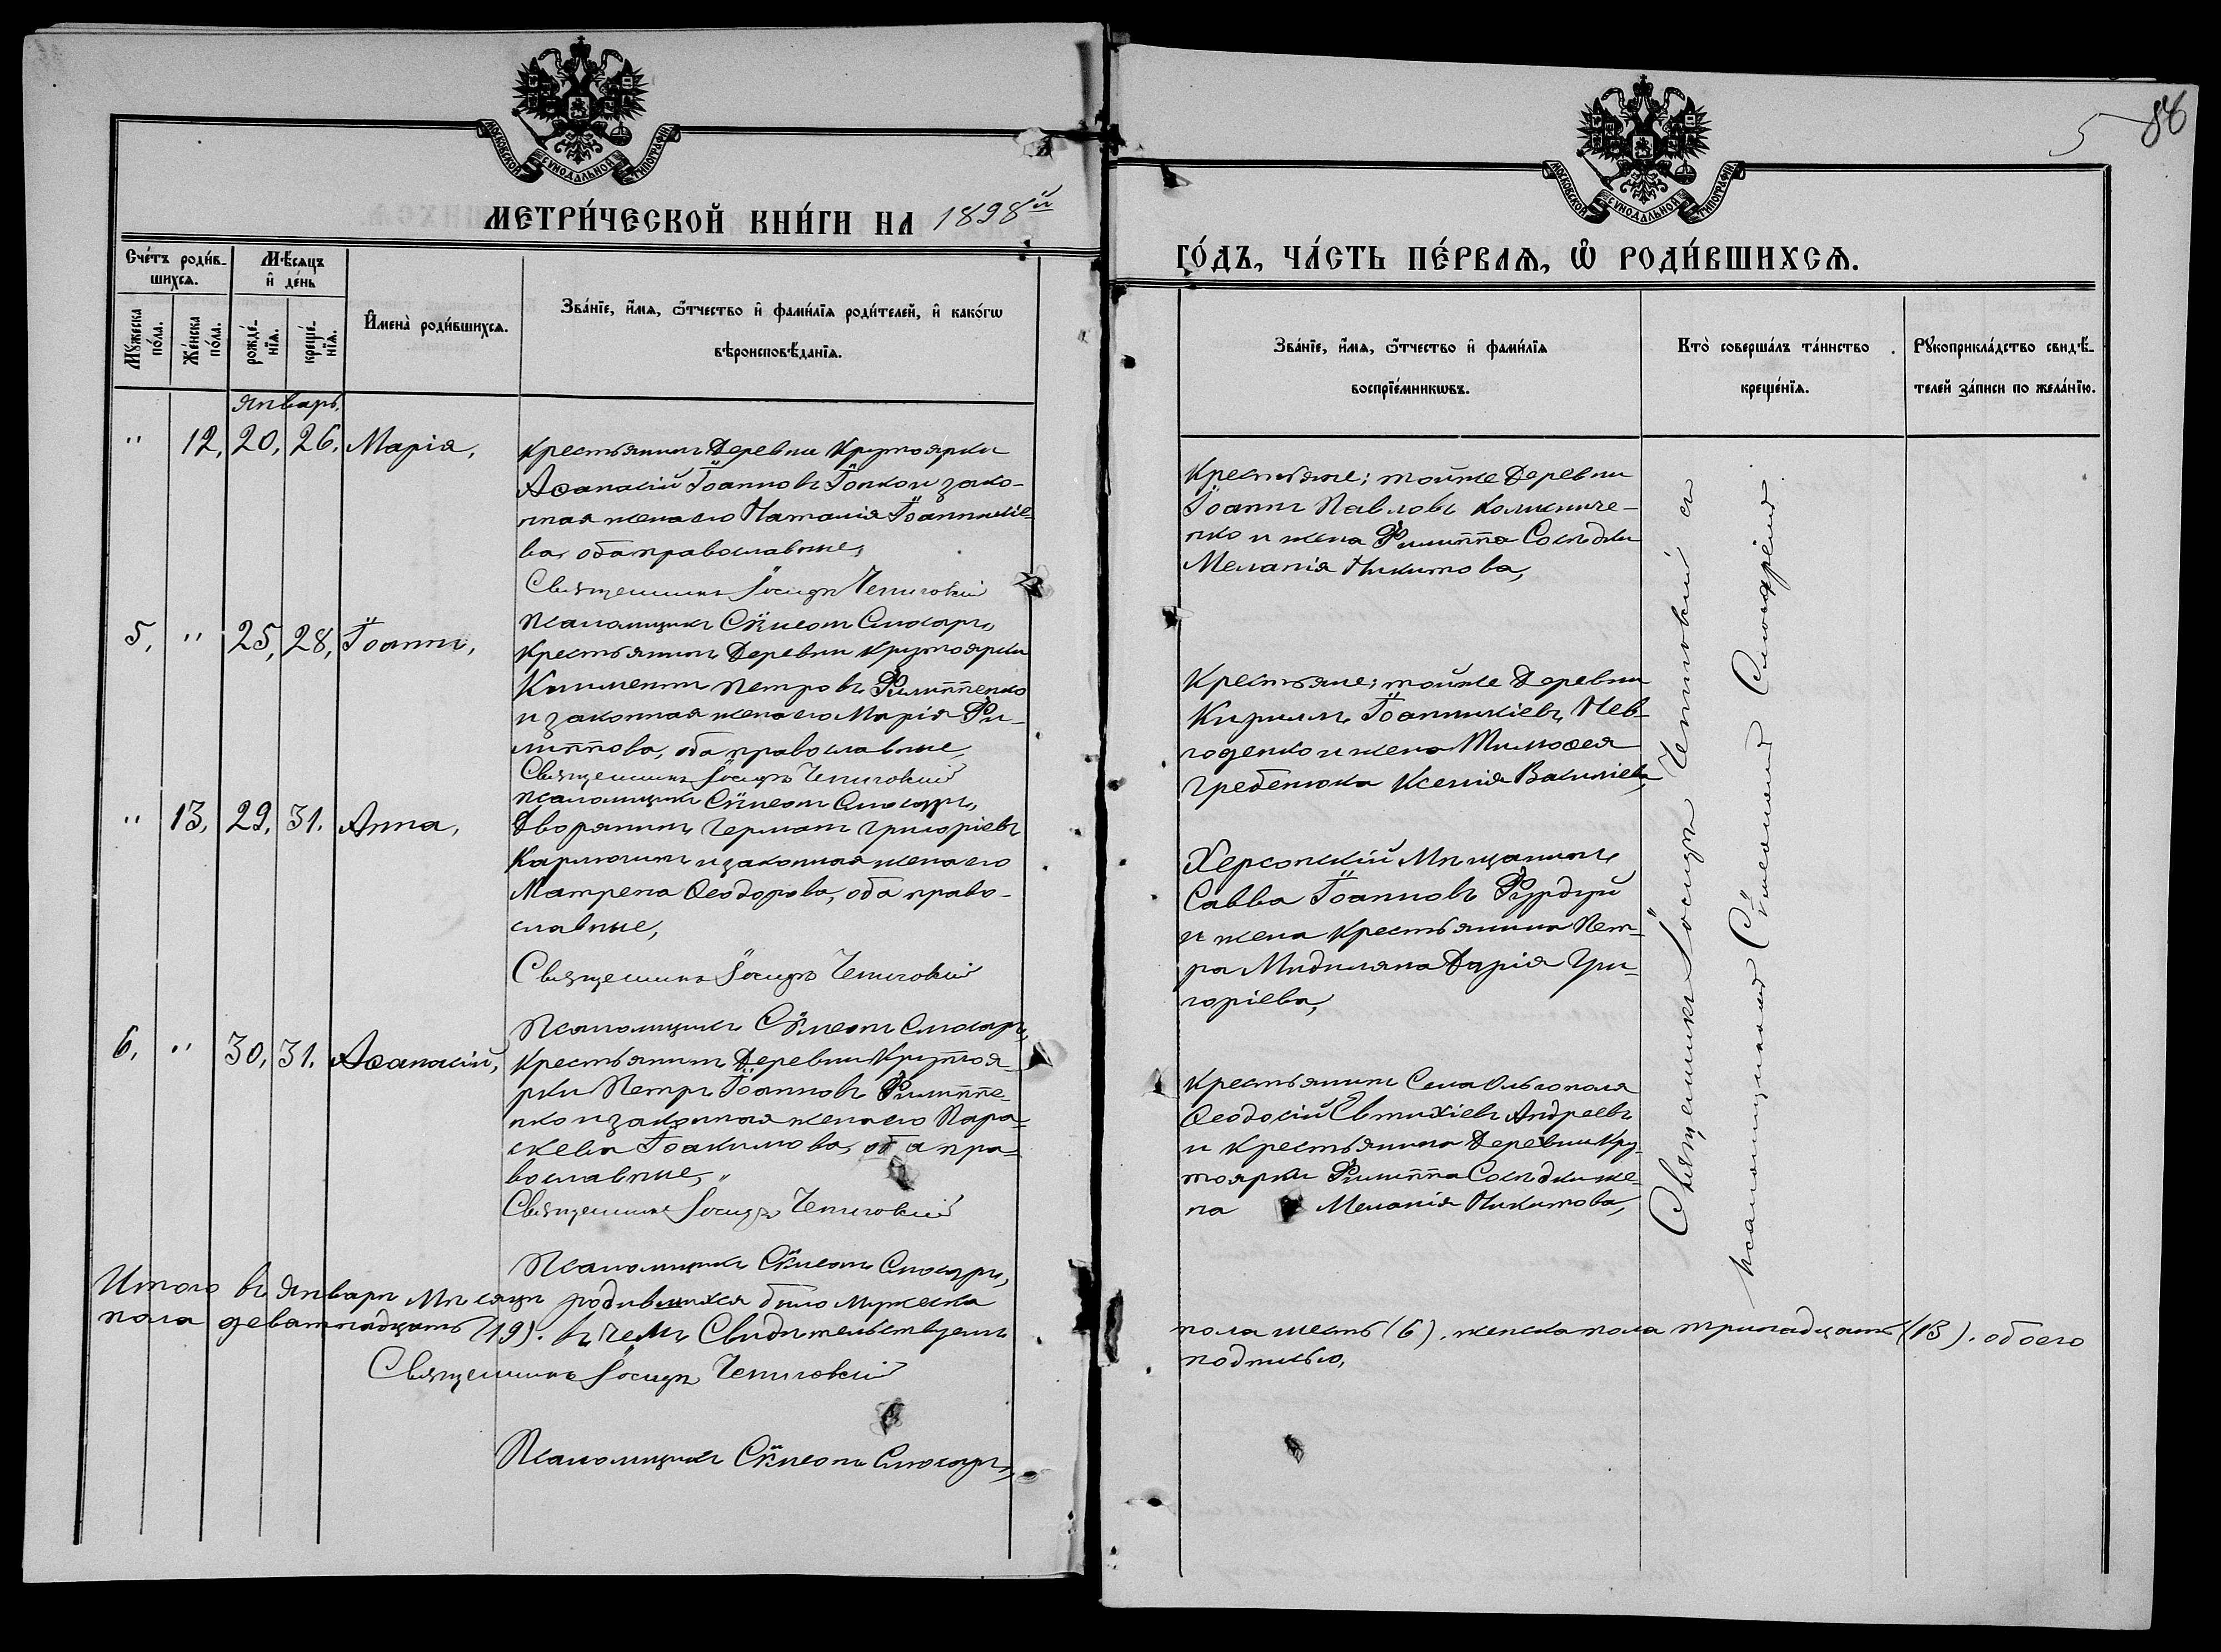 МОСКОВСКОЙ СѴНОДАЛЬНОЙ ТИПОГРАФІИ
МЕТРИ́ЧЕСКОЙ КНИ́ГИ НА 1898й
Сче́тъ роди́в-
шихсѧ.
Мѣ́сѧцъ
и҆ де́нь
Мꙋ́жеска
по́ла.
Же́нска
по́ла.
рожде́-
нїѧ.
креще́-
нїѧ.
И҆мена̀ роди́вшихсѧ.
Зва́нїе, и҆́мѧ, ѻ҆́тчество и҆ фами́лїѧ роди́телей, и҆ како́гѡ
вѣроисповѣ́данїѧ.
Январь.
" 12, 20, 26, Марія,
Крестьянинъ Деревни Крутоярки
Аѳанасій Іоанновъ Гонко и зако-
нная жена его Наталія Іоанникіе-
ва, оба православные,
Священникъ Іосифъ Чепиговскій
Псаломщикъ Сѵмеонъ Слюсарь,
5, " 25, 28, Іоаннъ,
Крестьянинъ Деревни Крутоярки
Климентъ Петровъ Филиппенко
и законная жена его Марія Фи-
липпова, оба православные,
Священникъ Іосифъ Чепиговскій
Псаломщикъ Сѵмеонъ Слюсарь,
" 13, 29, 31. Анна,
Дворянинъ Германъ Григоріевъ
Карпюгинъ и законная жена его
Матрена Ѳеодорова, оба право-
славные,
Священникъ Іосифъ Чепиговскій
Псаломщикъ Сѵмеонъ Слюсарь,
6, " 30, 31. Аѳанасій,
Крестьянинъ Деревни Крутоя-
рки Петръ Іоанновъ Филиппе-
нко и законная жена его Пара-
скева Іоакимова, оба пра-
вославные,
Священникъ Іосифъ Чепиговскій
Псаломщикъ Сѵмеонъ Слюсарь,
Итого въ Январѣ Мѣсяцѣ родившихся было мужеска
пола девятнадцать (19). въ чемъ Свидѣтельствуемъ
Священникъ Іосифъ Чепиговскій
Псаломщикъ Сѵмеонъ Слюсарь,
5 86
МОСКОВСКОЙ СѴНОДАЛЬНОЙ ТИПОГРАФІИ
ГО́ДЪ, ЧА́СТЬ ПЕ́РВАѦ, Ѡ҆ РОДИ́ВШИХСѦ.
Зва́нїе, и҆́мѧ, ѻ҆́тчество и҆ фами́лїѧ
воспрїе́мникѡвъ.
Кто̀ соверша́лъ та́инство
креще́нїѧ.
Рꙋкоприкла́дство свидѣ́-
телей за́писи по жела́нїю.
Крестьяне: тойже Деревни
Іоаннъ Павловъ Колисниче-
нко и жена Филиппа Сосѣдки
Меланія Никитова,
Крестьяне: тойже Деревни
Кириллъ Іоанникіевъ Нев-
годенко и жена Тимоѳея
Гребенюка Ксенія Василіева,
Херсонскій Мѣщанинъ
Савва Іоанновъ Фурдуй
и жена Крестьянина Пет-
ра Мидиляна Дарія Гри-
горіева,
Крестьянинъ Села Ольгополя
Ѳеодосій Евтихіевъ Андреевъ
и Крестьянина Деревни Кру-
тоярки Филиппа Сосѣдки же-
на Меланія Никитова,
Священникъ Іосифъ Чепиговскій съ
псаломщикомъ Сѵмеономъ Слюсаремъ.
пола шесть (6). женска пола тринадцать (13). обоего
подписью,